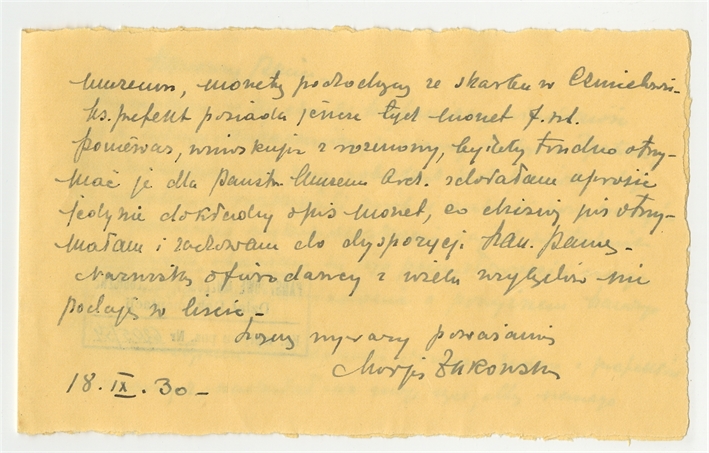 muzeum, monety pochodzące ze skarbu w Ćmielowi-
ks. prefekt posiada jeszcze tych monet
ponieważ, wnioskując z rozmowy, byłoby trudno otrzy-
mać je dla Państw. Muzeum Arch. zdołałam uprosić
jedynie dokładny opis monet, co dzisiaj już otrzy-
małam i zachowam do dyspozycji Pana.
Nazwiska ofiarodawcy z wielu względów nie
podaję w liście,-
Łączę wyrazy poważania
Marja Żukowska
18. IX. 30-